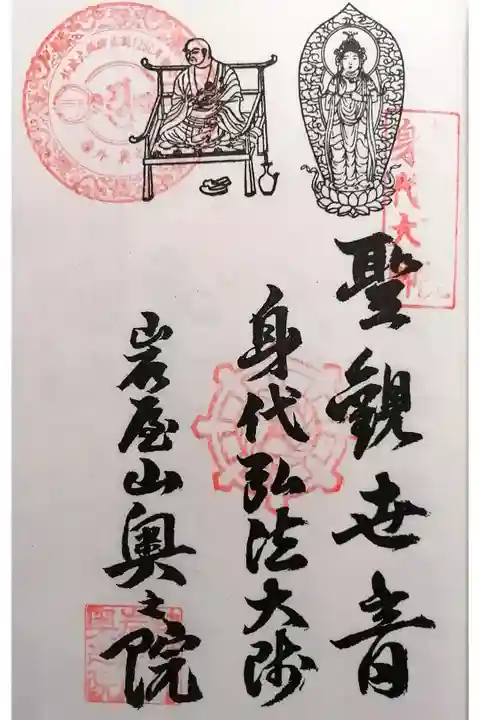 聖觀世音
身代弘法大师
岩屋山奥之院
身代大師